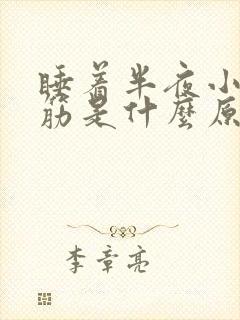 睡着半夜小
筋是什麼原
李章亮